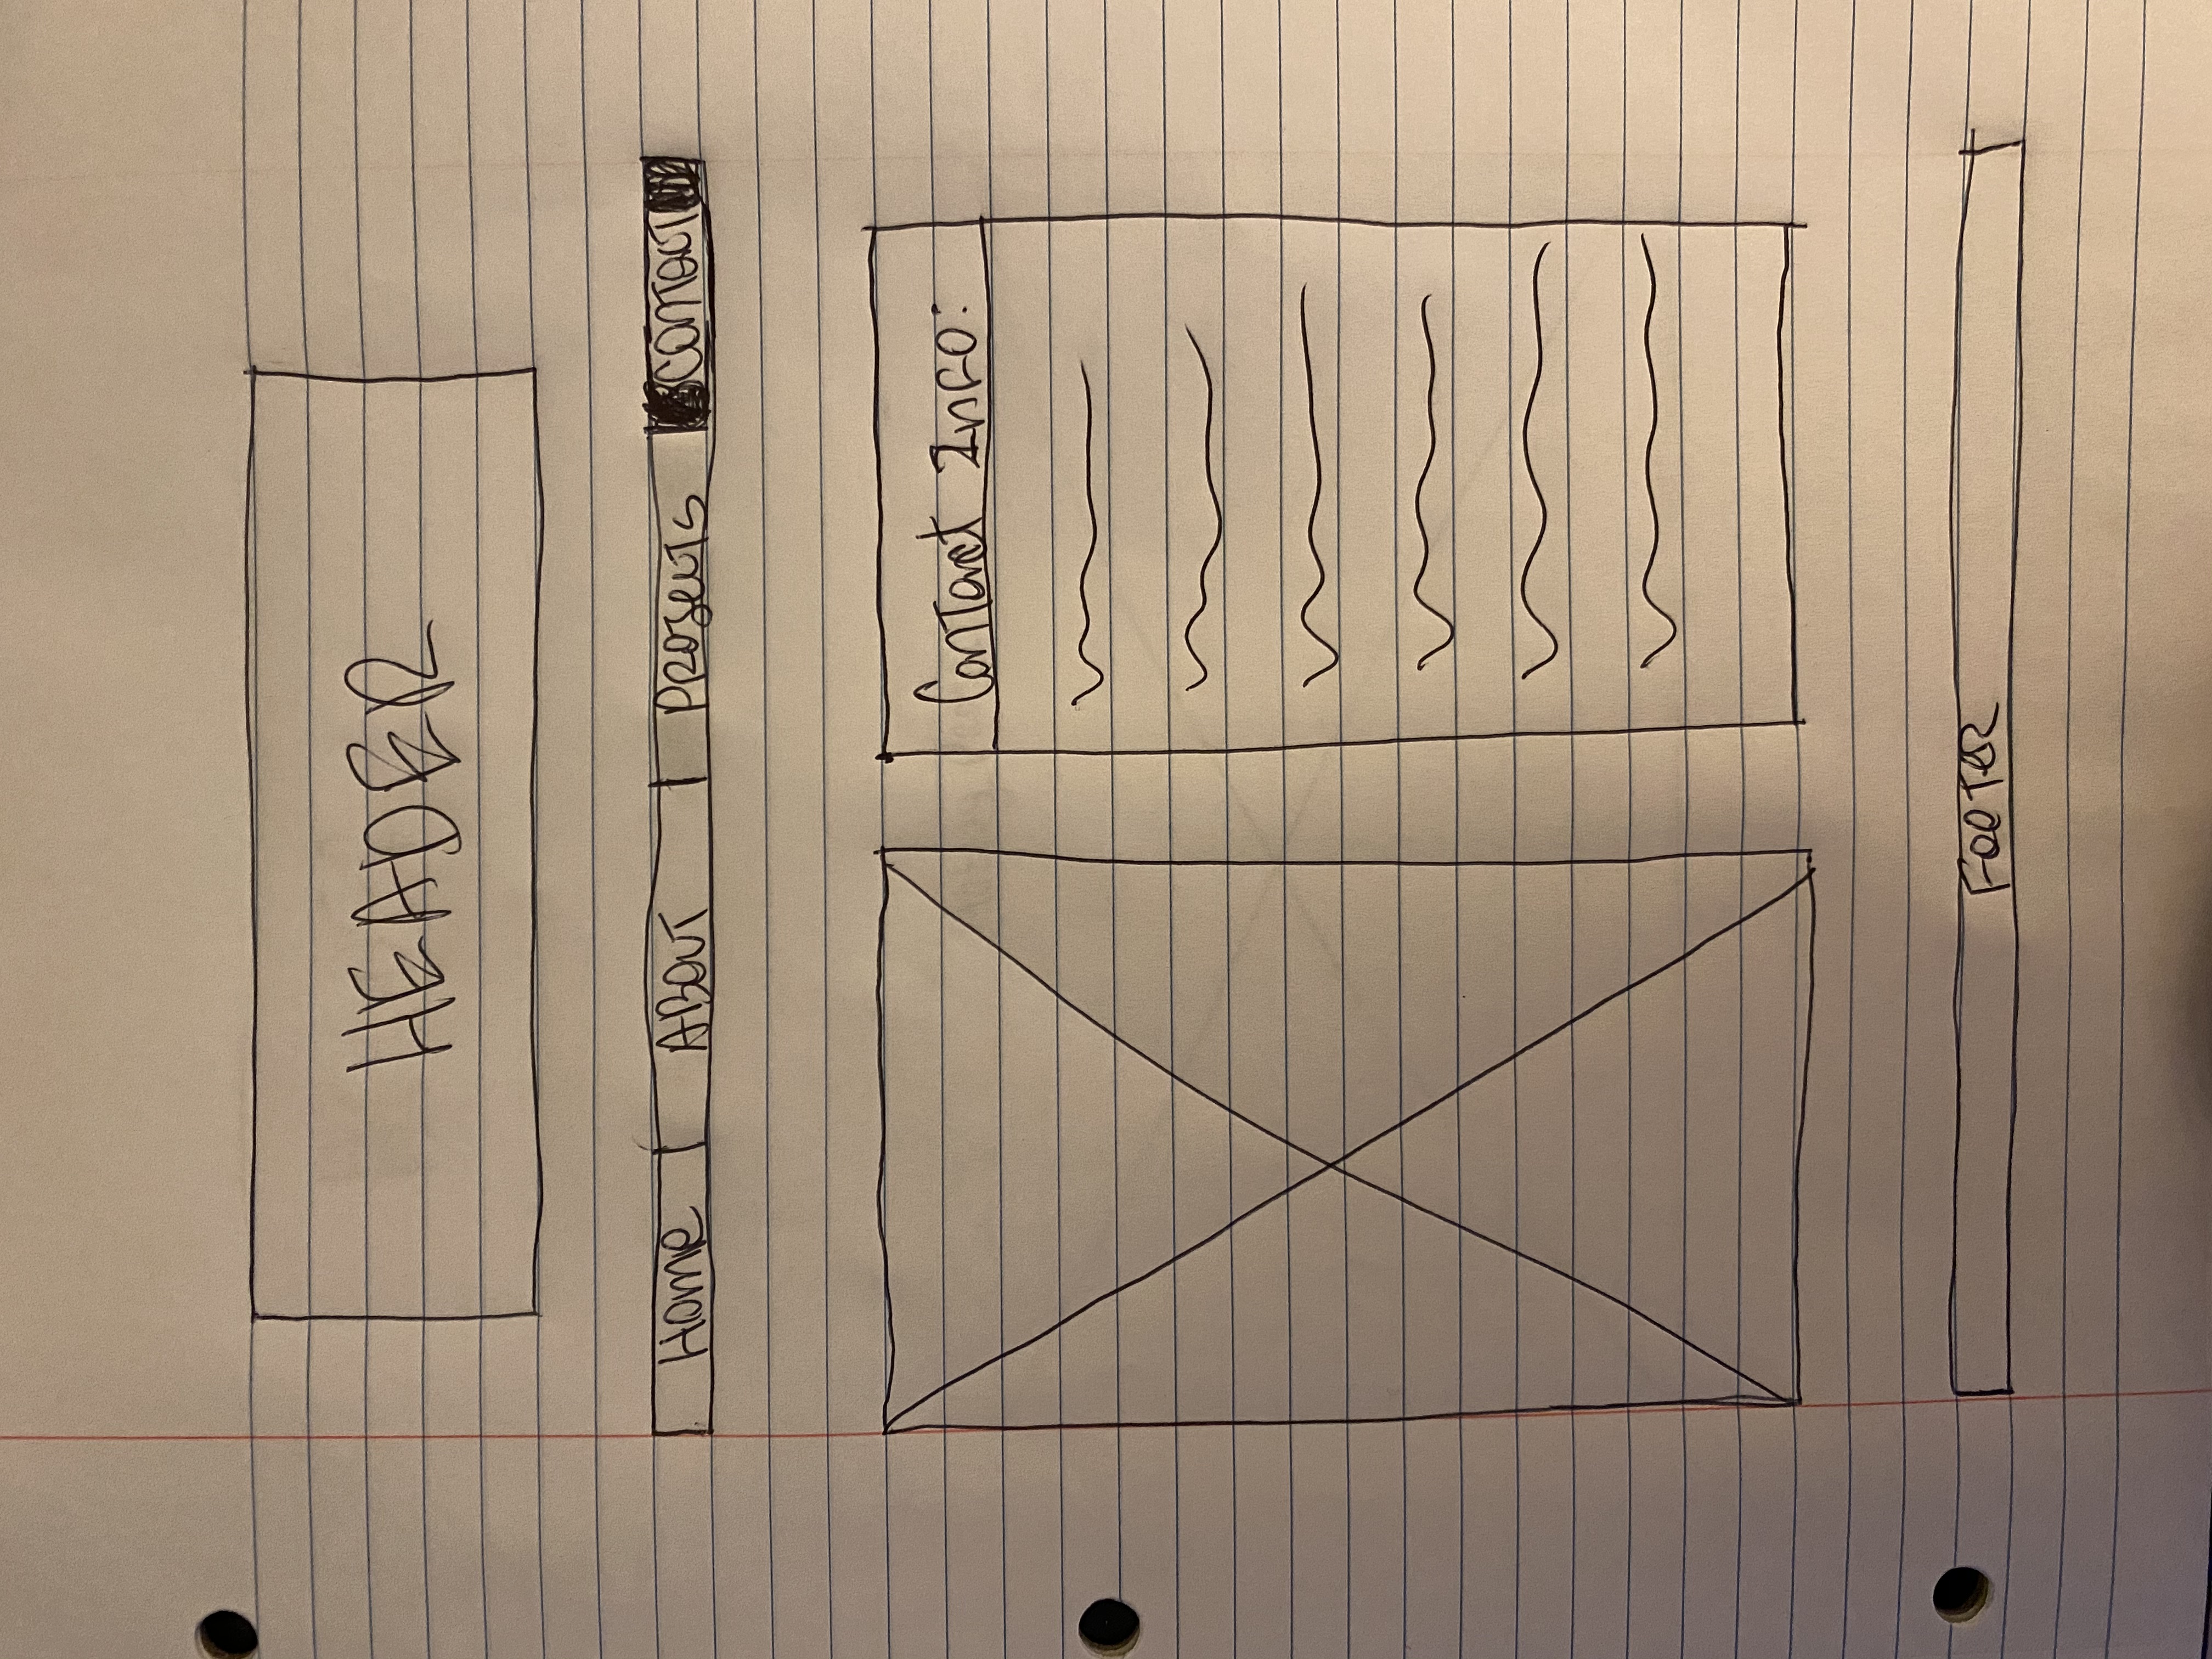 HEADER
Home ABOUT Projects Contact
Contact Info:
Footer